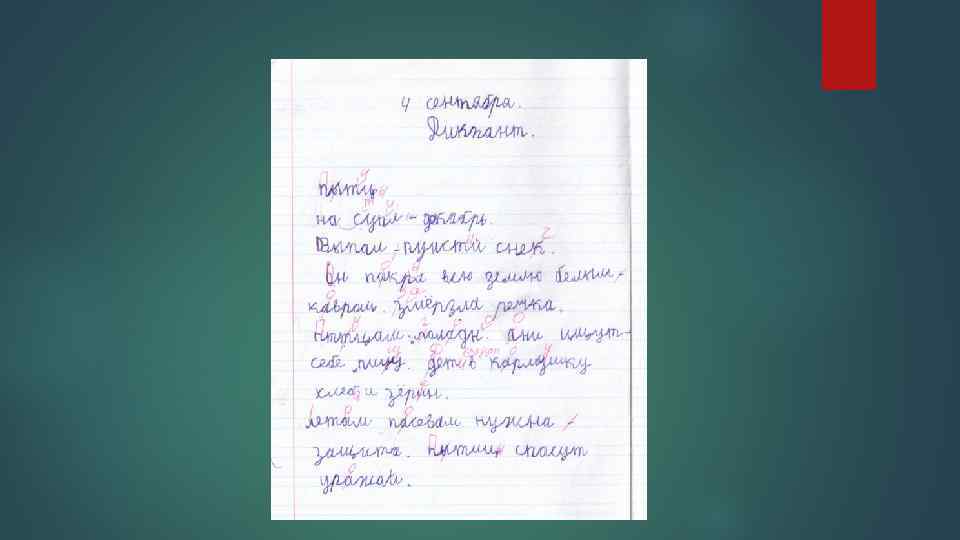 4 сентабра.
Диктант.
пытцы
на супил - декабрь.
Выпал - пуисти снек.
Он пакра всю землю белым -
кавром. змёрзла речка.
птицам холадн. ани ищут -
себе пищу. дети в кармушку
хлеб и зёрын.
летам пасевам нужна
защита. Пытици спасут
уражаи.